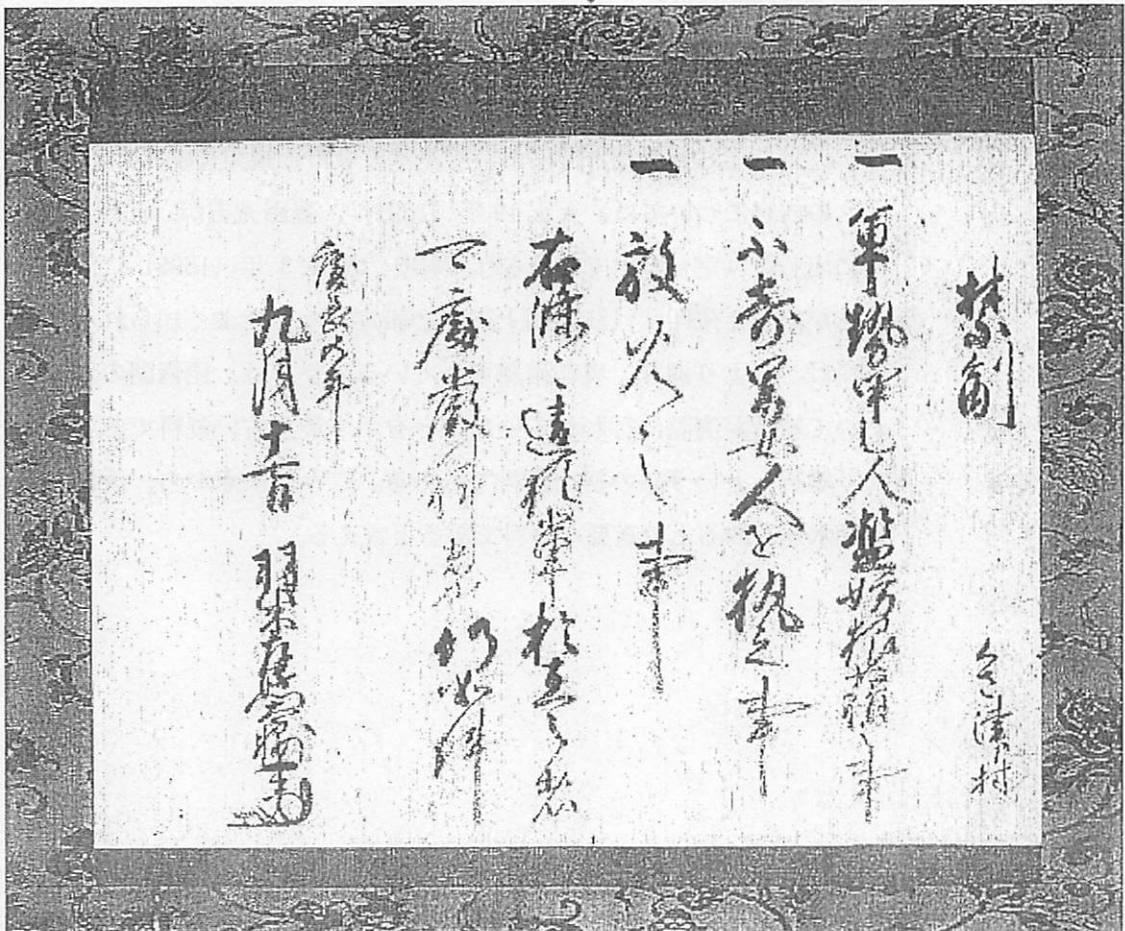 禁制 今津村
一 軍勢甲乙人濫妨狼藉之事
一 不寄男女人を執之事
一 放火之事
右條々違犯輩於在之者
可処厳科者也仍如件
慶長五年
九月十 日 羽柴左衛門